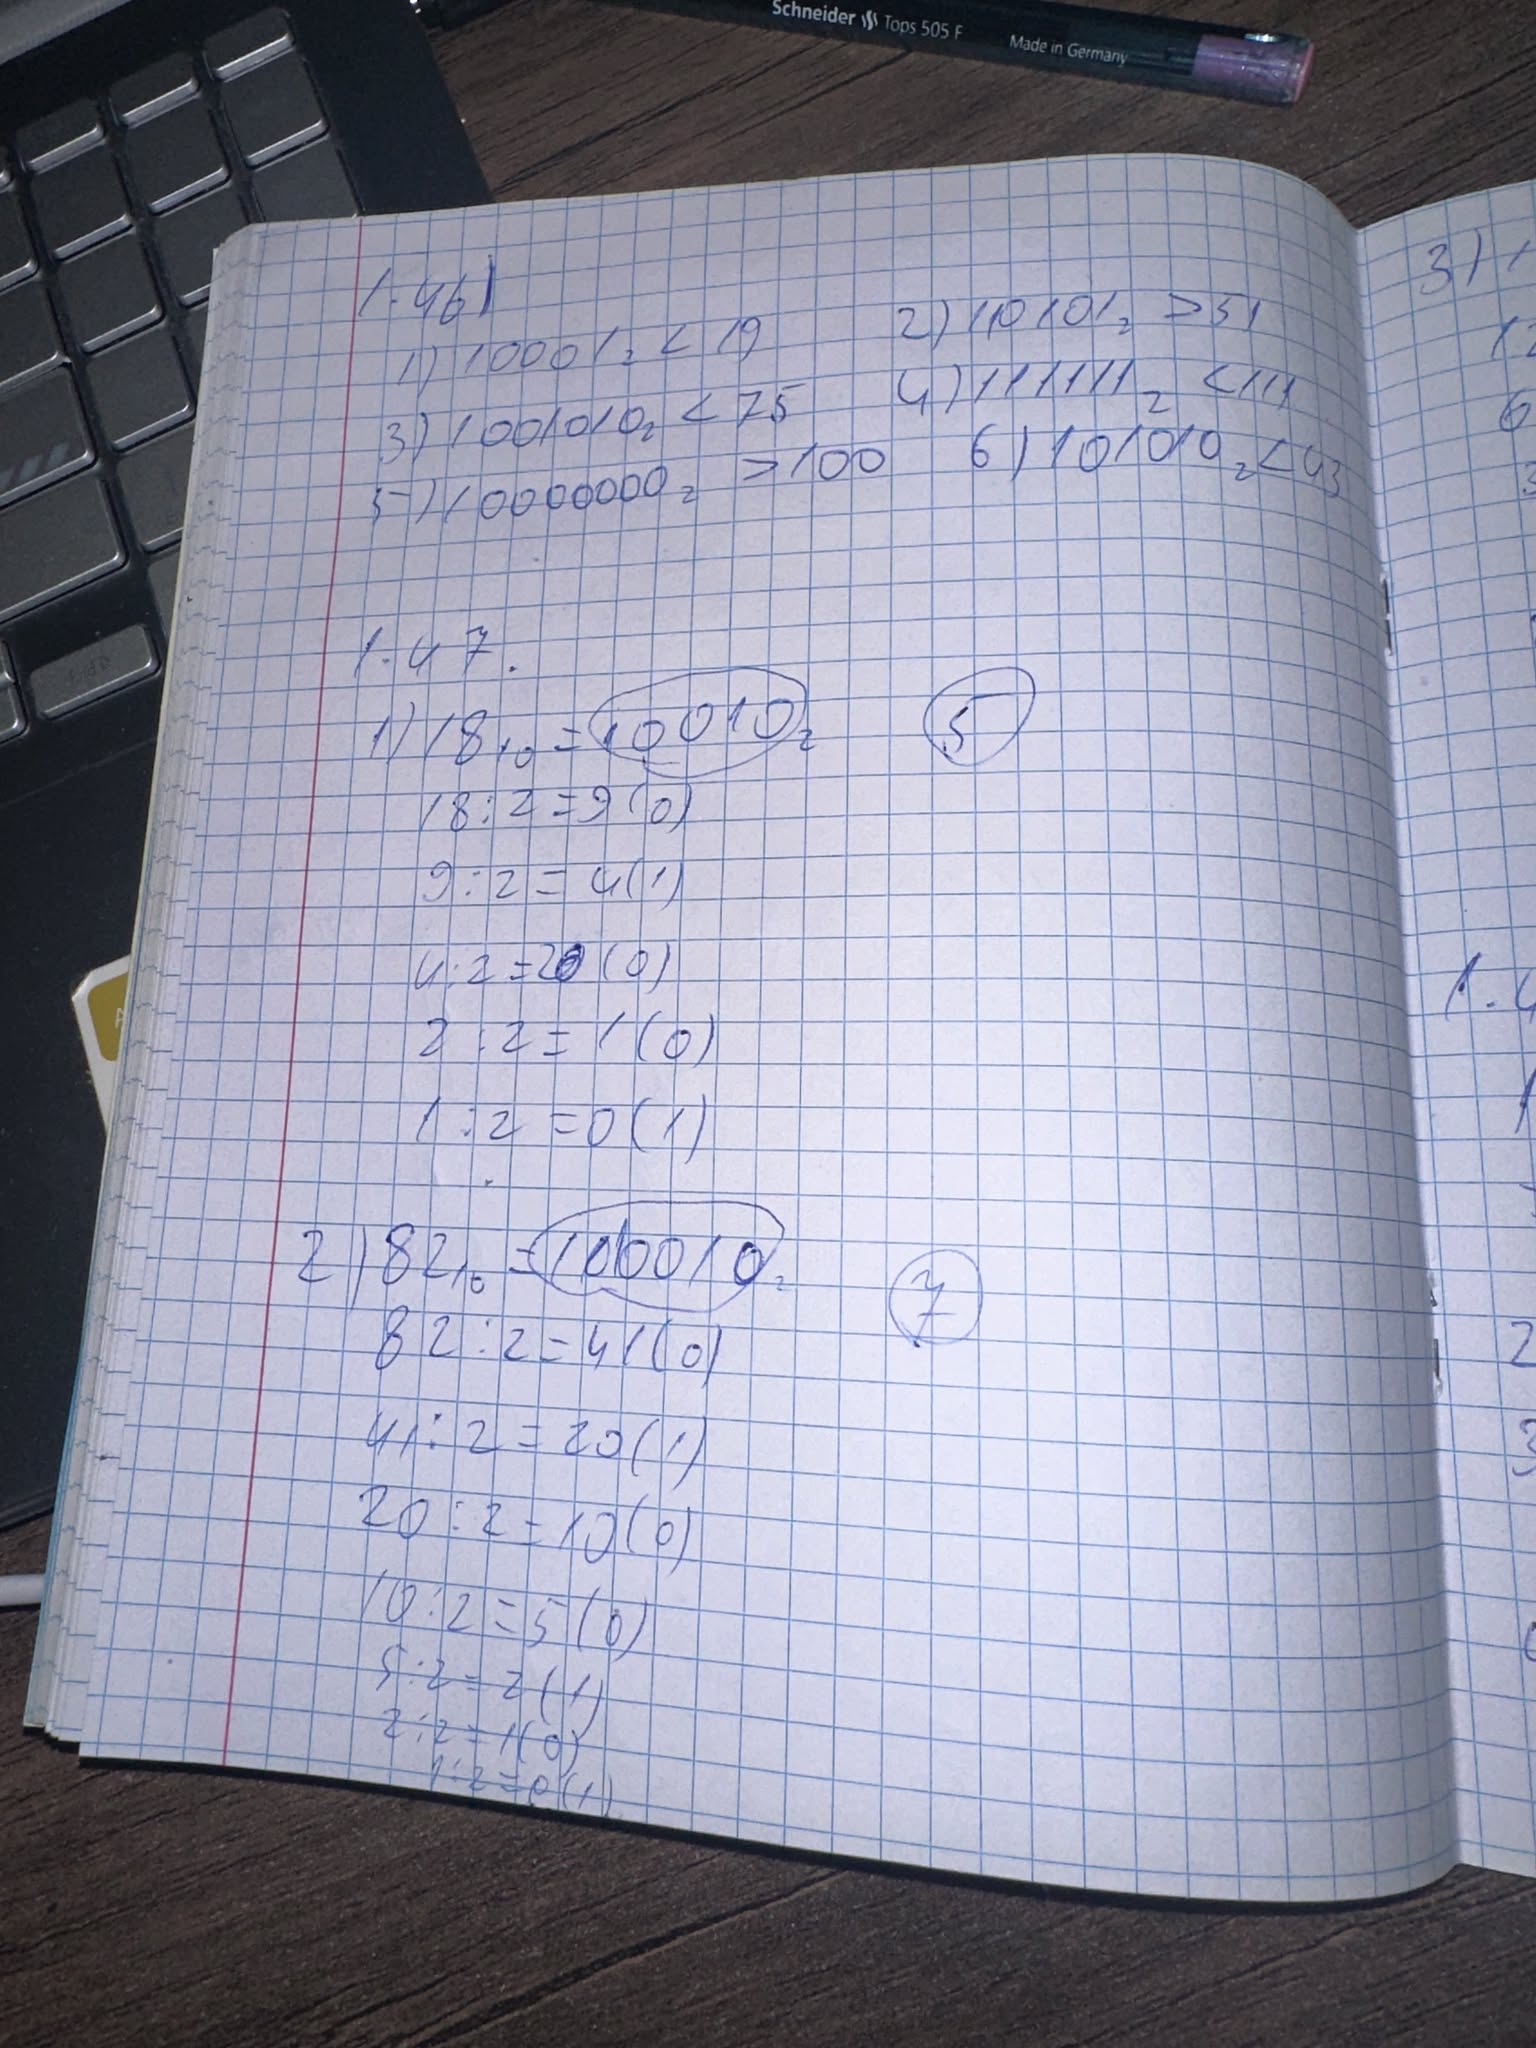 Schneider Tops 505 F Made in Germany
1.46)
1) 10001₂ < 19 2) 110101₂ > 51
3) 1001010₂ < 75 4) 111111₂ < 111
5) 10000000₂ > 100 6) 101010₂ < 43
1.47.
1) 18₁₀ = 10010₂ 5
18:2=9(0)
9:2=4(1)
4:2=2(0)
2:2=1(0)
1:2=0(1)
2) 82₁₀ = 1010010₂ 7
82:2=41(0)
41:2=20(1)
20:2=10(0)
10:2=5(0)
5:2=2(1)
2:2=1(0)
1:2=0(1)
3)
1.4
2
3